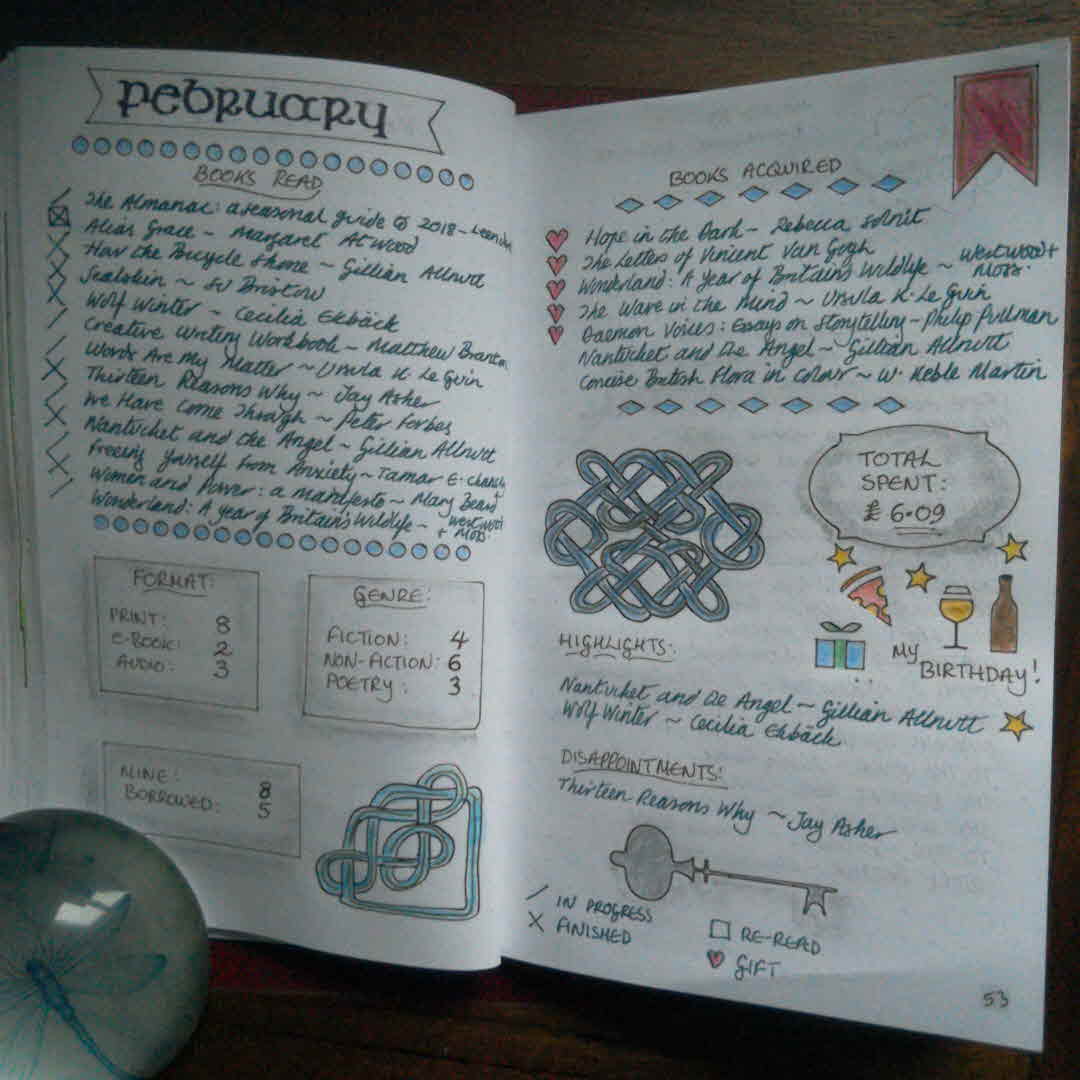 February
BOOKS READ
/ The Almanac: a seasonal guide to 2018 -
X Alias Grace ~ Margaret Atwood
X How the Bicycle Shone ~ Gillian Allnutt
X Sealskin ~ Su Bristow
X Wolf Winter ~ Cecilia Ekbäck
/ Creative Writing Workbook ~ Matthew
/ Words Are My Matter ~ Ursula K Le Guin
X Thirteen Reasons Why ~ Jay Asher
/ We Have Come Through ~ Peter Forbes
X Nantucket and the Angel ~ Gillian Allnutt
/ Freeing Yourself from Anxiety ~ Tamar E.
X Women and Power: a manifesto ~ Mary Beard
/ Wonderland: A year of Britain's Wildlife ~ Westwood
+ Moss.
FORMAT:
PRINT: 8
E-BOOK: 2
AUDIO: 3
GENRE:
FICTION: 4
NON-FICTION: 6
POETRY: 3
MINE: 8
BORROWED: 5
BOOKS ACQUIRED
Hope in the Dark ~ Rebecca Solnit
The Letters of Vincent Van Gogh
Wonderland: A year of Britain's Wildlife ~ Westwood +
Moss.
The Wave in the Mind ~ Ursula K. Le Guin
Daemon Voices: Essays on Storytelling ~ Philip Pullman
Nantucket and the Angel ~ Gillian Allnutt
Concise British Flora in Colour ~ W. Keble Martin
TOTAL
SPENT:
£ 6.09
MY
BIRTHDAY!
HIGHLIGHTS:
Nantucket and the Angel ~ Gillian Allnutt
Wolf Winter ~ Cecilia Ekbäck
DISAPPOINTMENTS:
Thirteen Reasons Why ~ Jay Asher
/ IN PROGRESS
X FINISHED
RE-READ
GIFT
53